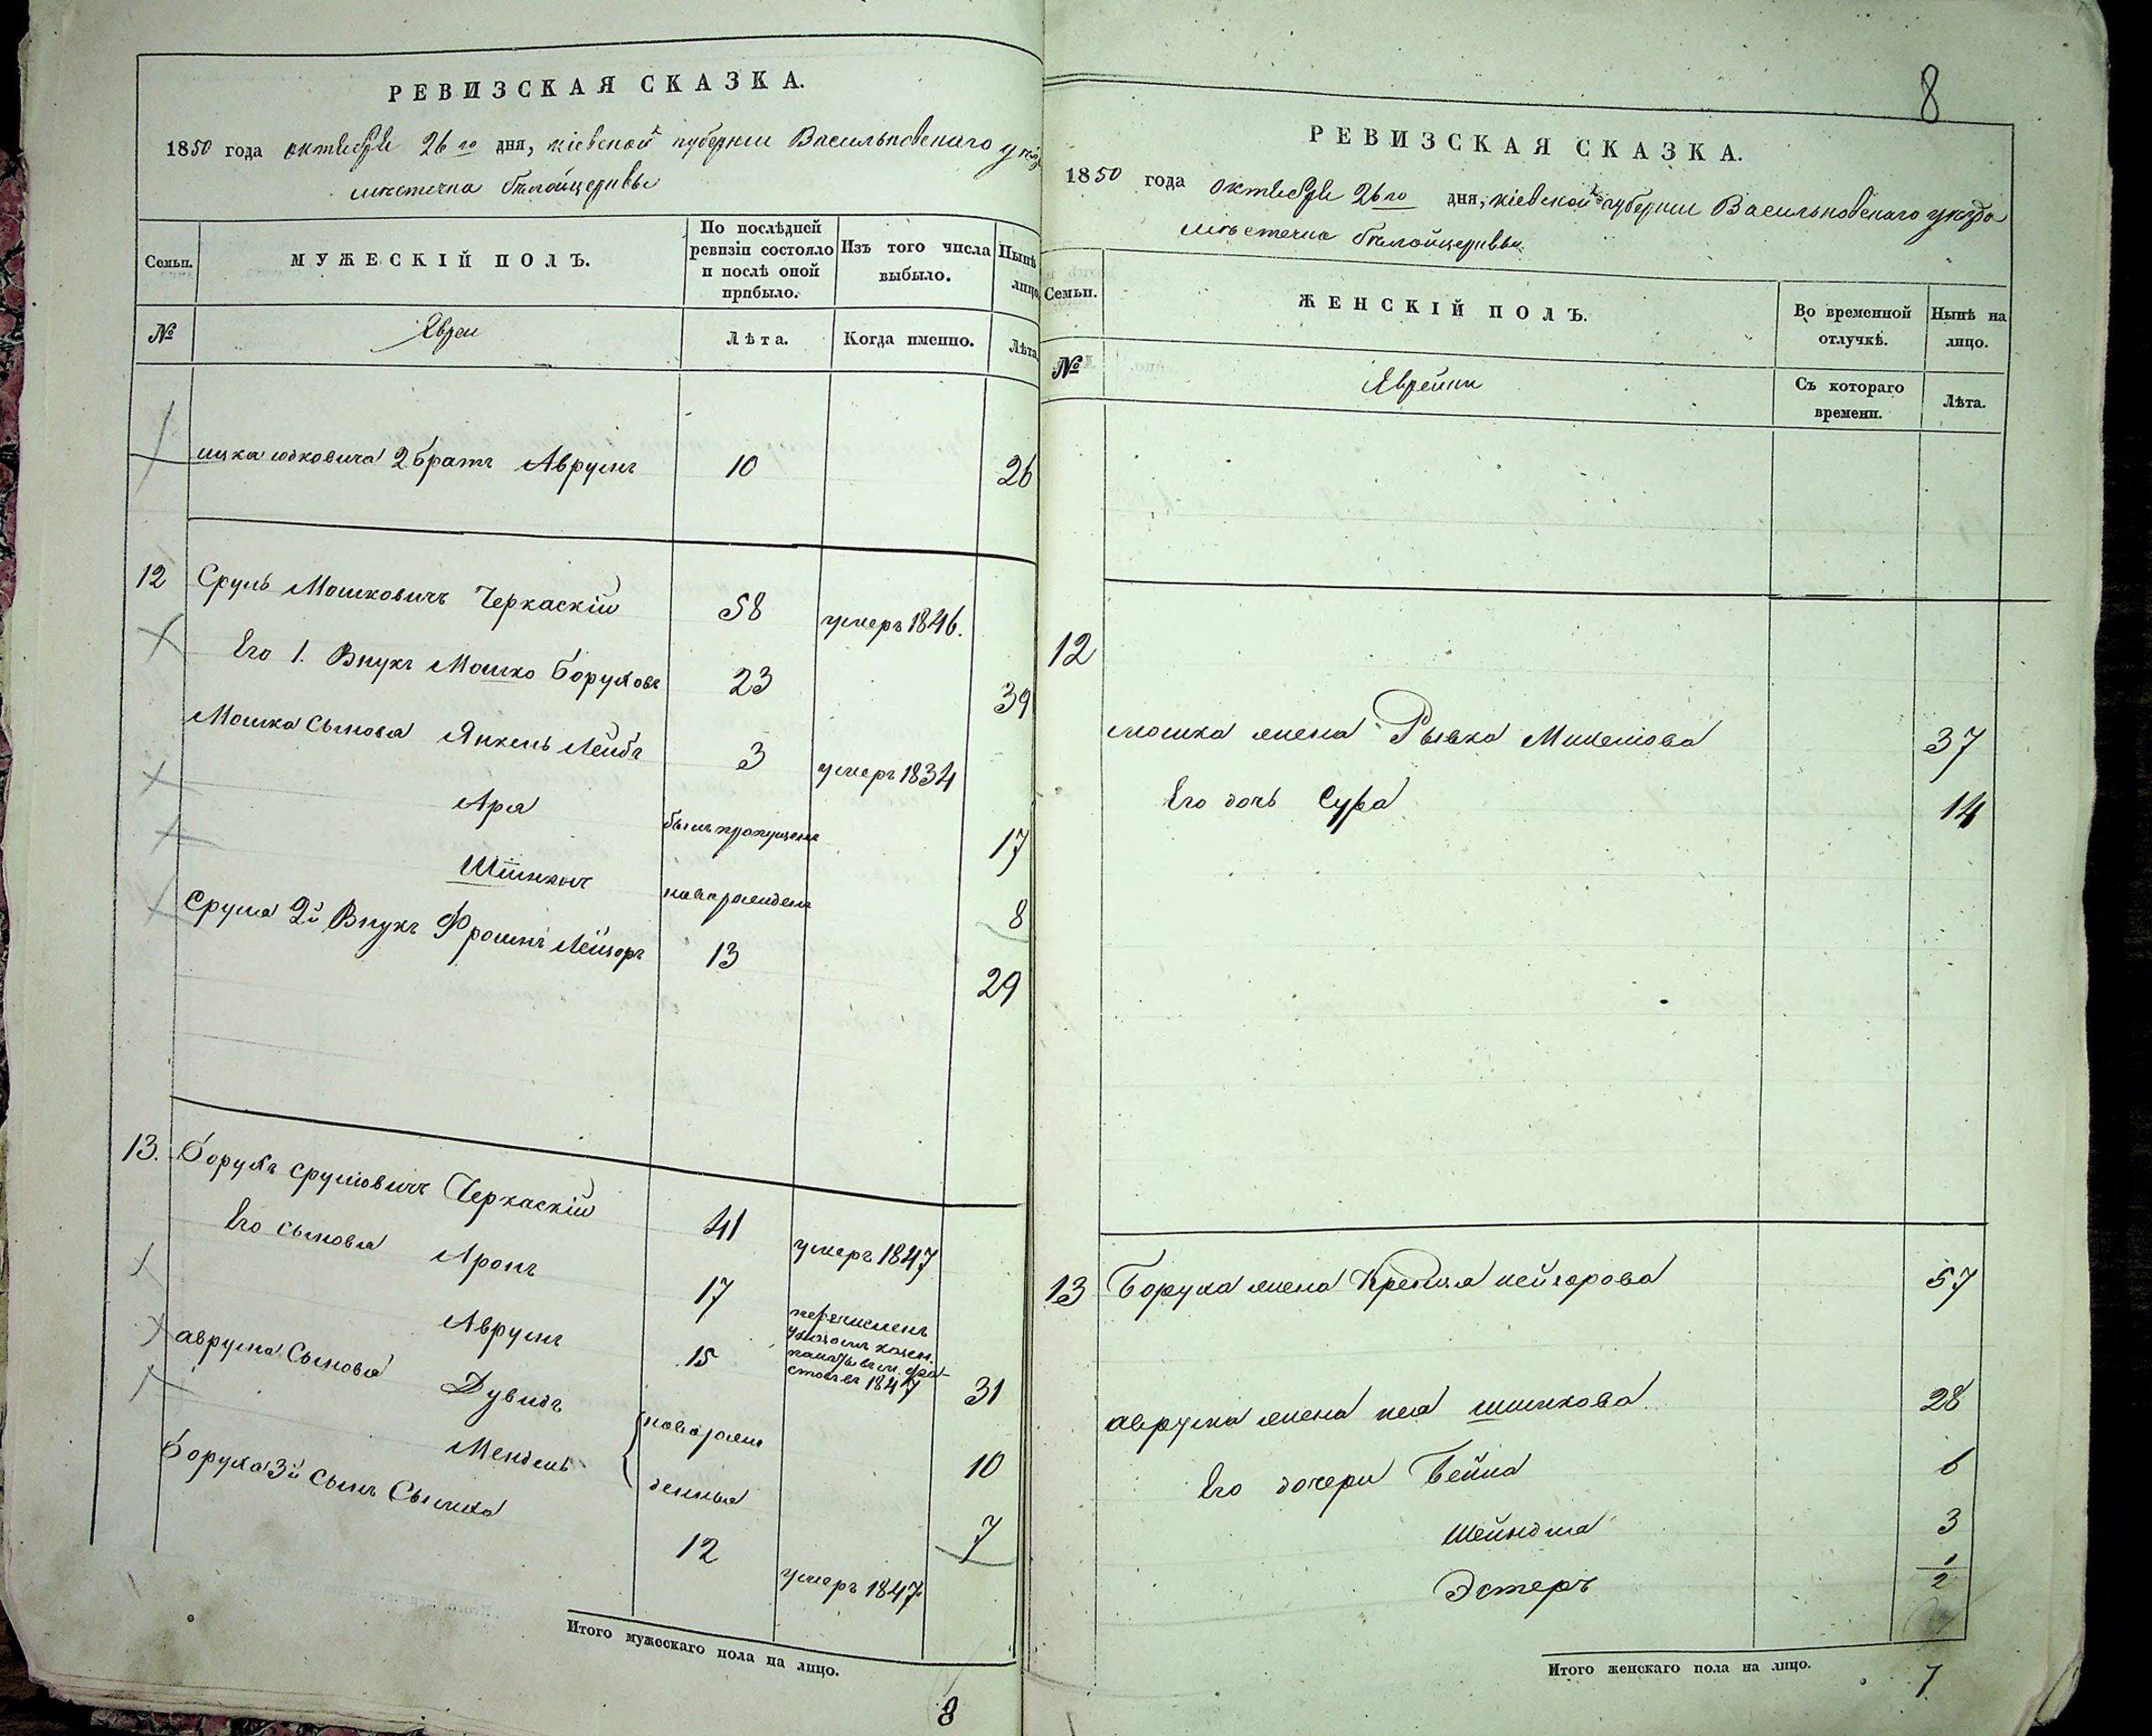 РЕВИЗСКАЯ СКАЗКА.
1850 года октября 26го дня, кіевской губерніи Васильковскаго уѣзда
мѣстечка бѣлойцеркви
Семьи.
МУЖЕСКІЙ ПОЛЪ.
По послѣдней ревизіи состояло и послѣ оной прибыло.
Изъ того числа выбыло.
Нынѣ на лицо
№
Евреи
Лѣта.
Когда именно.
Лѣта.
ицка юдковича 2 братъ Аврумъ 10 26
12 Сруль Мошковичъ Черкаскій 58 умеръ 1846.
Его 1. Внукъ Мошко Боруховъ 23 39
Мошка Сыновя Янкель Лейбъ 3 умеръ 1834
Аря былъ пропущенъ 17
Шлиомъ новорожденъ 8
Сруля 2й Внукъ Фроимъ Лейзоръ 13 29
13. Борухъ срулiовичъ Черкаскій 41 умеръ 1847
Его сыновья Аронъ 17 перечисленъ
указомъ казен.
палаты въ м. фа-
стовъ въ 1847
Аврумъ 15 31
аврума Сыновя Дувидъ новорож 10
Мендель денныя 7
Боруха 3й сынъ Сымха 12 умеръ 1847
Итого мужескаго пола на лицо.
8
8
РЕВИЗСКАЯ СКАЗКА.
1850 года октября 26го дня, кіевской губерніи Васильковскаго уѣзда
мѣстечка бѣлойцеркви
Семьи.
ЖЕНСКІЙ ПОЛЪ.
Во временной отлучкѣ.
Нынѣ на лицо.
№
Еврейки
Съ котораго времени.
Лѣта.
12
мошка жена Рывка Михелiова 37
Его дочь Сура 14
13 Боруха жена Крейця лейзорова 57
аврума жена шлиомова 28
Его дочери Бейла 6
Шейндля 3
Эстеръ 1/2
Итого женскаго пола на лицо.
7